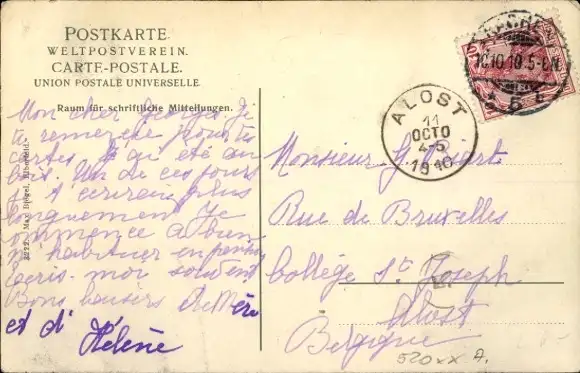 POSTKARTE.
WELTPOSTVEREIN.
CARTE-POSTALE.
UNION POSTALE UNIVERSELLE.
Raum für schriftliche Mitteilungen.
Mon cher Georges Je
te remercie pour tes
cartes. qui été au
bois. Un de ces jours
je t'écrirai plus
longuement Je
commence à bien
m'habituer en pension
écris-moi souvent
Bons baisers de Mère
et d'
Hélène
8222. Max Biegel, Elberfeld.
AACHEN
10.10.10.5-6N
5
ALOST
11
OCTO
4-5
1910
Monsieur G.
Rue de Bruxelles
Collège St Joseph
Alost
Belgique
520xx A.